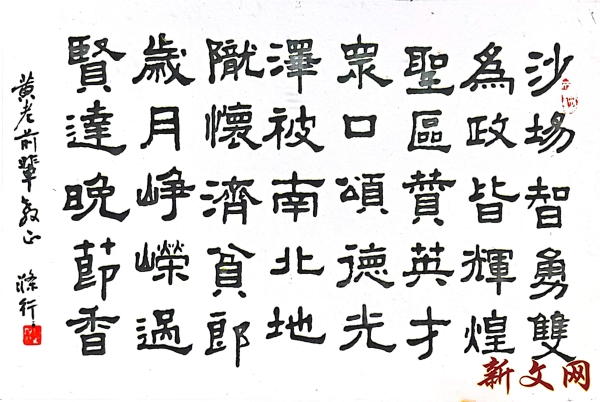 沙場智勇雙
為政皆輝煌
聖區賛英才
衆口頌德光
澤被南北地
懷濟貧郎
歲月崢嶸過
賢達晚節香
黃老前輩教正 行
新文网